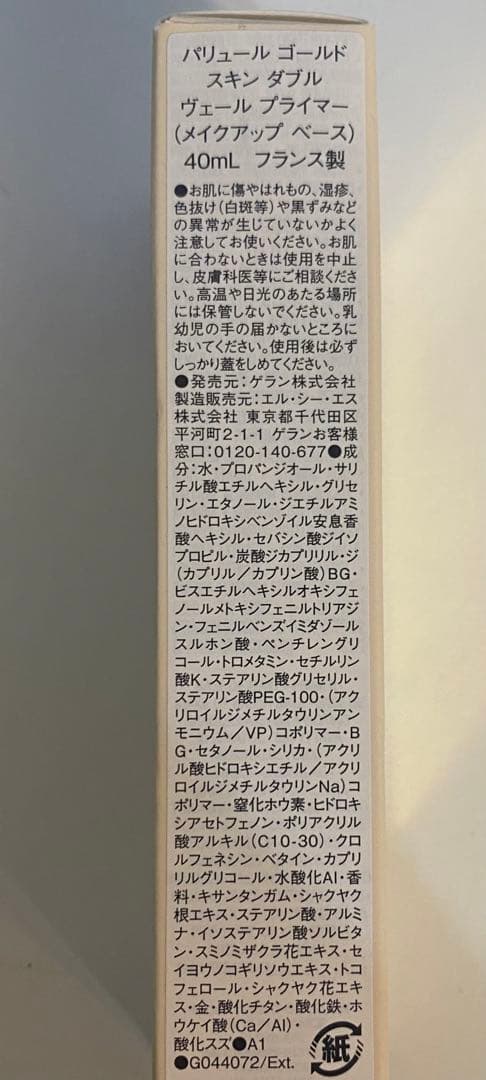 パリュール ゴールド
スキン ダブル
ヴェール プライマー
(メイクアップ ベース)
40mL フランス製
●お肌に傷やはれもの、湿疹、
色抜け(白斑等)や黒ずみなど
の異常が生じていないかよく
注意してお使いください。お肌
に合わないときは使用を中止
し、皮膚科医等にご相談くださ
い。高温や日光のあたる場所
には保管しないでください。乳
幼児の手の届かないところに
おいてください。使用後は必ず
しっかり蓋をしめてください。
●発売元:ゲラン株式会社
製造販売元:エル・シー・エス
株式会社 東京都千代田区
平河町2-1-1 ゲランお客様
窓口:0120-140-677●成
分:水・プロパンジオール・サリ
チル酸エチルヘキシル・グリセ
リン・エタノール・ジエチルアミ
ノヒドロキシベンゾイル安息香
酸ヘキシル・セバシン酸ジイソ
プロピル・炭酸ジカプリリル・ジ
(カプリル/カプリン酸)BG・
ビスエチルヘキシルオキシフェ
ノールメトキシフェニルトリアジ
ン・フェニルベンズイミダゾール
スルホン酸・ペンチレングリ
コール・トロメタミン・セチルリン
酸K・ステアリン酸グリセリル・
ステアリン酸PEG-100・(アク
リロイルジメチルタウリンアン
モニウム/VP)コポリマー・B
G・セタノール・シリカ・(アクリ
ル酸ヒドロキシエチル/アクリ
ロイルジメチルタウリンNa)コ
ポリマー・窒化ホウ素・ヒドロキ
シアセトフェノン・ポリアクリル
酸アルキル(C10-30)・クロ
ルフェネシン・ベタイン・カプリ
リルグリコール・水酸化Al・香
料・キサンタンガム・シャクヤク
根エキス・ステアリン酸・アルミ
ナ・イソステアリン酸ソルビタ
ン・スミノミザクラ花エキス・セ
イヨウノコギリソウエキス・トコ
フェロール・シャクヤク花エキ
ス・金・酸化チタン・酸化鉄・ホ
ウケイ酸(Ca/Al)・
酸化スズ●A1
●G044072/Ext.
紙